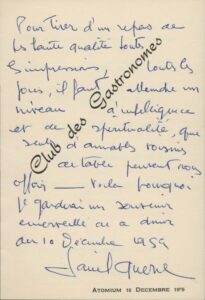 Pour tirer d'un repas de
la haute qualité toutes
les impressions, toutes les
joies, il faut attendre un
niveau d'intelligence
et de spiritualité, que
seuls d'aimables voisins
de table peuvent nous
offrir — Voilà pourquoi
je garderai un souvenir
émerveillé de ce dîner
du 10 Décembre 1959
Club des Gastronomes
ATOMIUM 10 DECEMBRE 1959